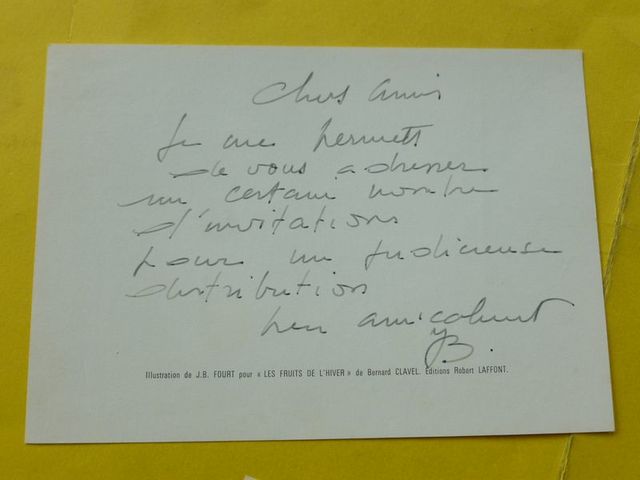 Chers Amis
Je me permets
de vous adresser
un certain nombre
d'invitations
pour un judicieuse
distribution
bien amicalement
JB.
Illustration de J.B. FOURT pour « LES FRUITS DE L'HIVER » de Bernard CLAVEL. Éditions Robert LAFFONT.